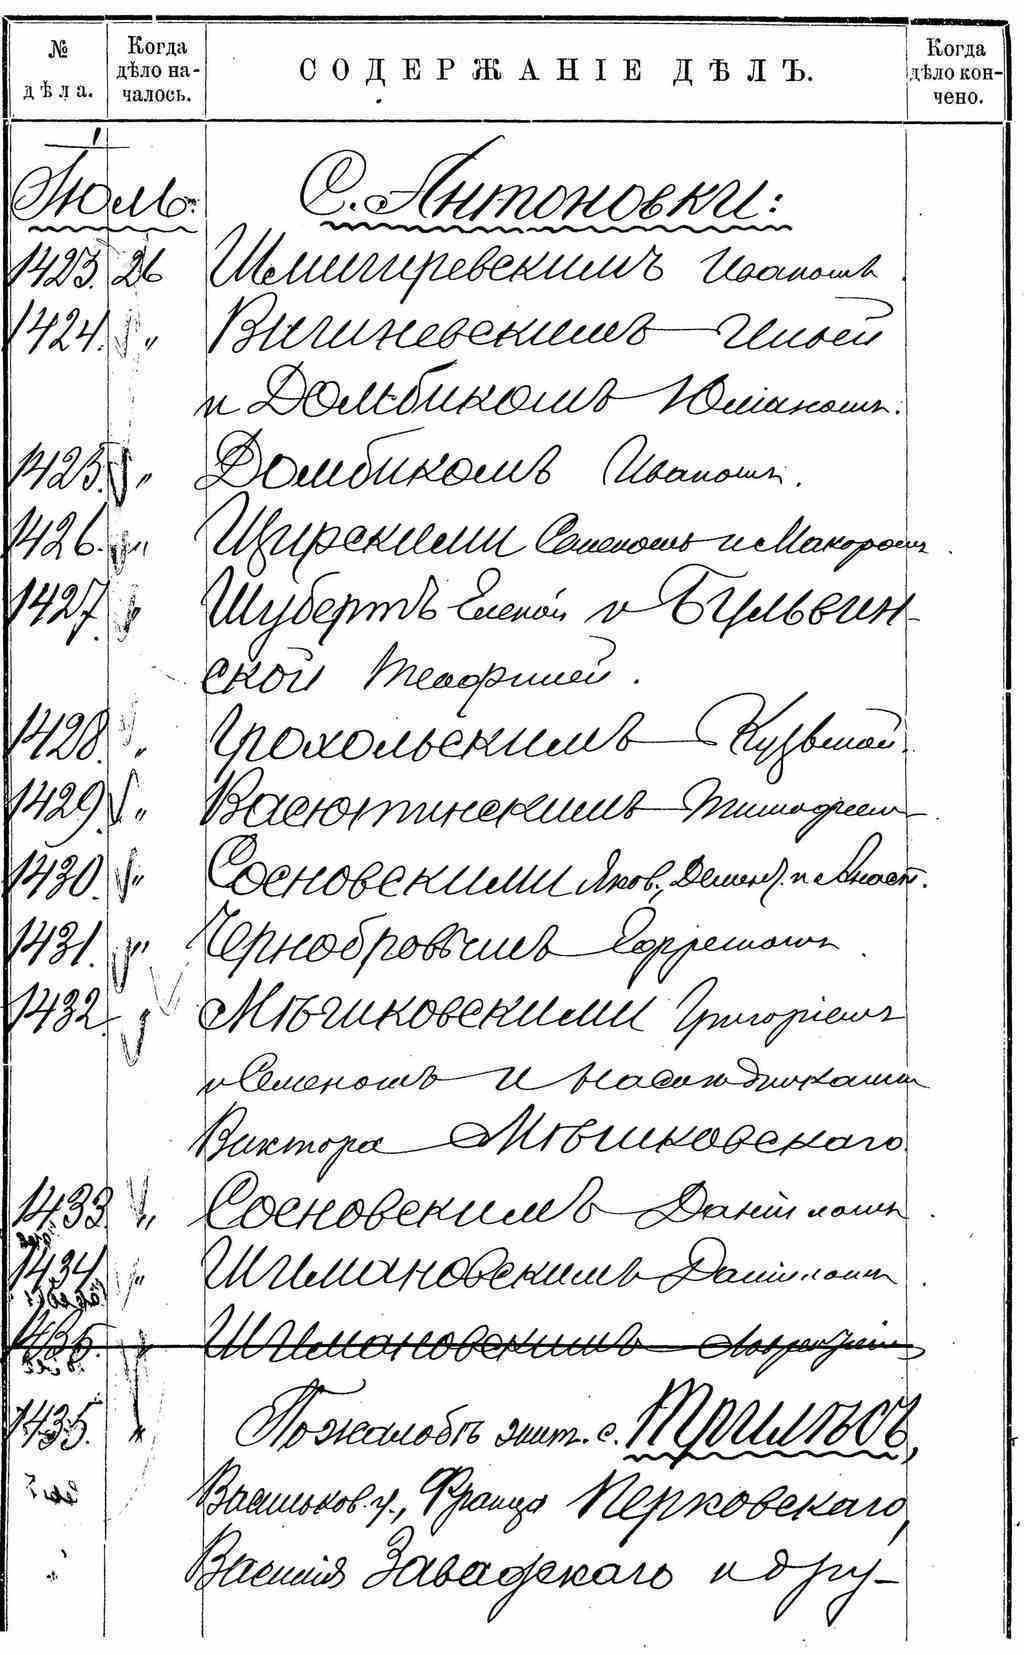 № дѣла.
Когда дѣло началось.
СОДЕРЖАНІЕ ДѢЛЪ.
Когда дѣло кончено.
Іюль: С. Антоновки:
1423. 26 Шмигиревскимъ Иваномъ.
1424. „ Вишневскимъ Ильей
и Домбикомъ Юліаномъ.
1425. „ Домбикомъ Иваномъ.
1426. „ Щирскими Семеномъ и Макаромъ.
1427. „ Шубертъ Еленой и Бульвин-
ской Теофилей.
1428. „ Грохольскимъ Кузьмой.
1429. „ Васютинскимъ Тимофеем
1430. „ Сосновскими Яков., Демент. и Анаст.
1431. „ Чернобровымъ Ефремомъ.
1432. „ Мѣшковскими Григоріемъ
и Семеномъ и наслѣдниками
Виктора Мѣшковскаго.
1433. „ Сосновскимъ Даніиломъ.
1434. „ Шимановскимъ Даниломъ.
1435. „ Шимановскимъ
1435. „ По жалобѣ жит. с. Трилѣсъ,
Васильков. у., Франца Перковскаго,
Василія Завадскаго и дру-